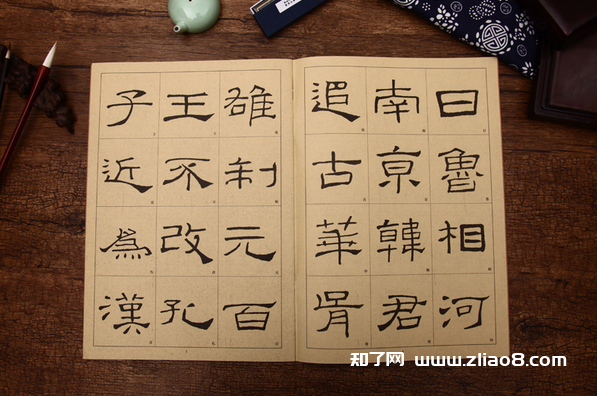 曰魯相河
南京韓君
追古華胥
雄制元百
王不改孔
子近為漢
知了网 www.zliao8.com